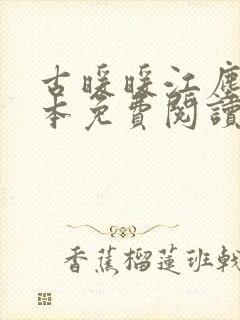 古暖暖江塵
本免費閱讀
香蕉榴蓮班戟